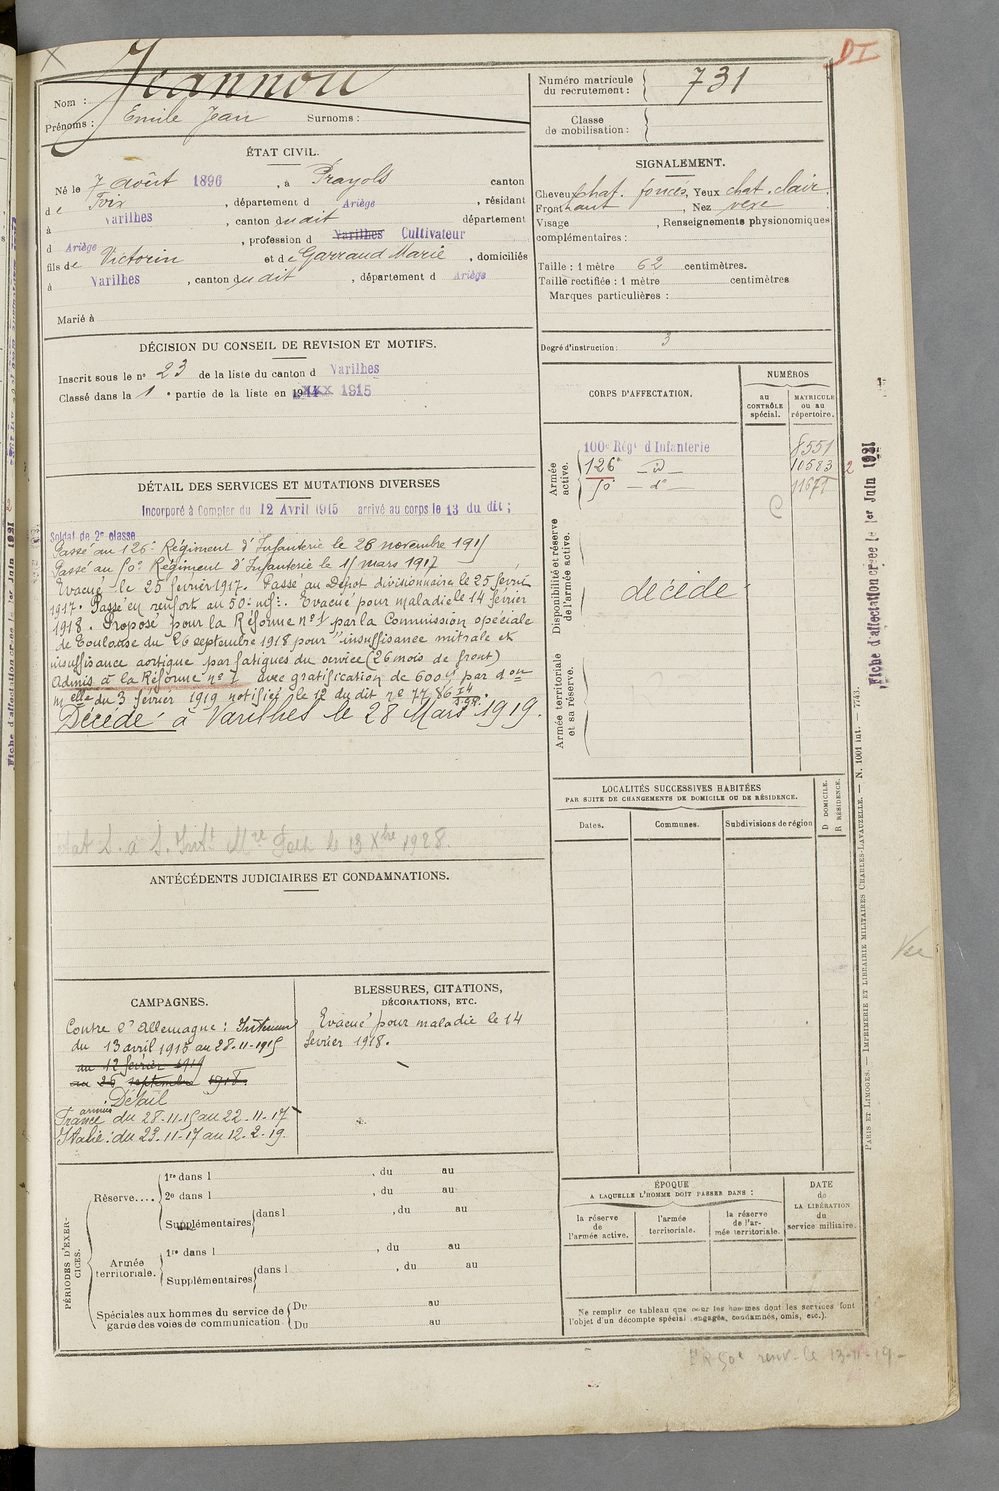 DI
Jeannou
Nom :
Prénoms : Emile Jean Surnoms :
Numéro matricule du recrutement : 731
Classe de mobilisation :
ÉTAT CIVIL.
Né le 7 août 1896, à Prayols canton
d e Foix, département d Ariège, résidant
à Varilhes, canton du dit département
d Ariège, profession d Varilhes Cultivateur
fils de Victorin et de Garraud Marie, domiciliés
à Varilhes, canton du dit, département d Ariège
Marié à
SIGNALEMENT.
Cheveux chat. foncés, Yeux chat. clair.
Front haut, Nez vexe
Visage , Renseignements physionomiques
complémentaires :
Taille : 1 mètre 62 centimètres.
Taille rectifiée : 1 mètre centimètres
Marques particulières :
Degré d'instruction : 3
DÉCISION DU CONSEIL DE REVISION ET MOTIFS.
Inscrit sous le nº 23 de la liste du canton d Varilhes
Classé dans la 1e partie de la liste en 1915
CORPS D'AFFECTATION.
NUMÉROS
au CONTRÔLE spécial.
MATRICULE ou au répertoire.
Armée active.
100e Régt d'Infanterie 8551
126e _ D _ 10583 2
50e _ do _ 11671
Disponibilité et réserve de l'armée active.
décédé
Armée territoriale et sa réserve.
DÉTAIL DES SERVICES ET MUTATIONS DIVERSES
Incorporé à Compter du 12 Avril 1915 arrivé au corps le 13 du dit ;
Soldat de 2e classe
Passé au 126e Régiment d'Infanterie le 26 novembre 1915
Passé au 50e Régiment d'Infanterie le 15 mars 1917
Evacué le 25 février 1917. Passé au Dépot divisionnaire le 25 février
1917. Passé en renfort au 50e inf. Evacué pour maladie le 14 février
1918. Proposé pour la Réforme nº 1 par la Commission spéciale
de Toulouse du 26 septembre 1918 pour "insuffisance mitrale et
insuffisance aortique par fatigues du service (26 mois de front)
Admis à la Réforme nº 1 avec gratification de 600f par don
melle du 3 février 1919 notifiée le 12 du dit nº 77.86
Décédé à Varilhes le 28 Mars 1919.
le 13 Xbre 1928.
LOCALITÉS SUCCESSIVES HABITÉES
PAR SUITE DE CHANGEMENTS DE DOMICILE OU DE RÉSIDENCE.
Dates.
Communes.
Subdivisions de région
D DOMICILE.
R RÉSIDENCE.
ANTÉCÉDENTS JUDICIAIRES ET CONDAMNATIONS.
CAMPAGNES.
Contre l'Allemagne : Intérieur
du 13 avril 1915 au 28-11-1915
au 12 février 1919
au 26 septembre 1918
Détail
France armées du 28-11-15 au 22-11-17
Italie : du 23-11-17 au 12-2-19.
BLESSURES, CITATIONS,
DÉCORATIONS, ETC.
Evacué pour maladie le 14
février 1918.
PÉRIODES D'EXERCICES.
Réserve....
1re dans l , du au
2e dans l , du au
Supplémentaires dans l , du au
Armée territoriale.
1re dans l , du au
Supplémentaires dans l , du au
Spéciales aux hommes du service de garde des voies de communication
Du au
Du au
ÉPOQUE
A LAQUELLE L'HOMME DOIT PASSER DANS :
la réserve de l'armée active.
l'armée territoriale.
la réserve de l'armée territoriale.
DATE de LA LIBÉRATION du service militaire.
Ne remplir ce tableau que pour les hommes dont les services font
l'objet d'un décompte spécial (engagés, condamnés, omis, etc.).
Fiche d'affectation créée le 1er Juin 1921
PARIS ET LIMOGES. — IMPRIMERIE ET LIBRAIRIE MILITAIRES CHARLES-LAVAUZELLE. — N. 1001 int. — 7743.
Vu